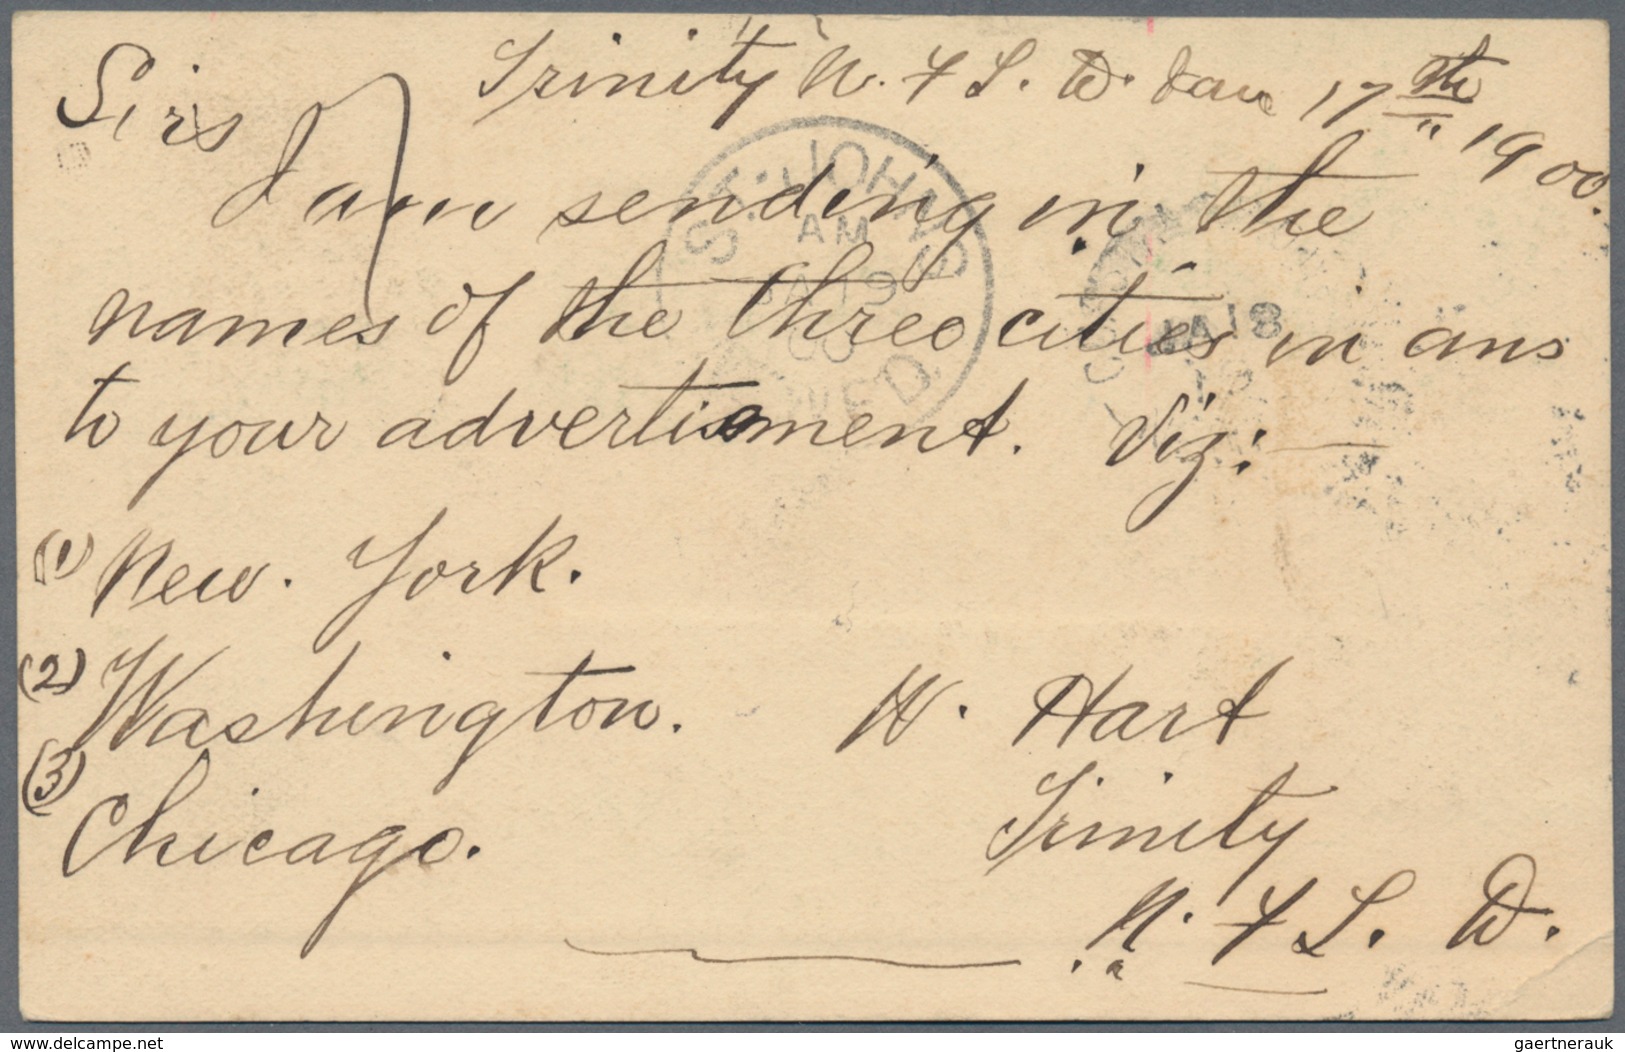 Trinity N. F L. D. Jan 17th 1900.
Sirs
I am sending in the
names of the three cities in ans
to your advertisment. Viz:—
(1) New. York.
(2) Washington.
(3) Chicago.
W. Hart
Trinity
N. F L. D.
ST. JOHN'S
AM
JA 19
00
NFD.
JA 18
delcampe.net
gaertnerauk